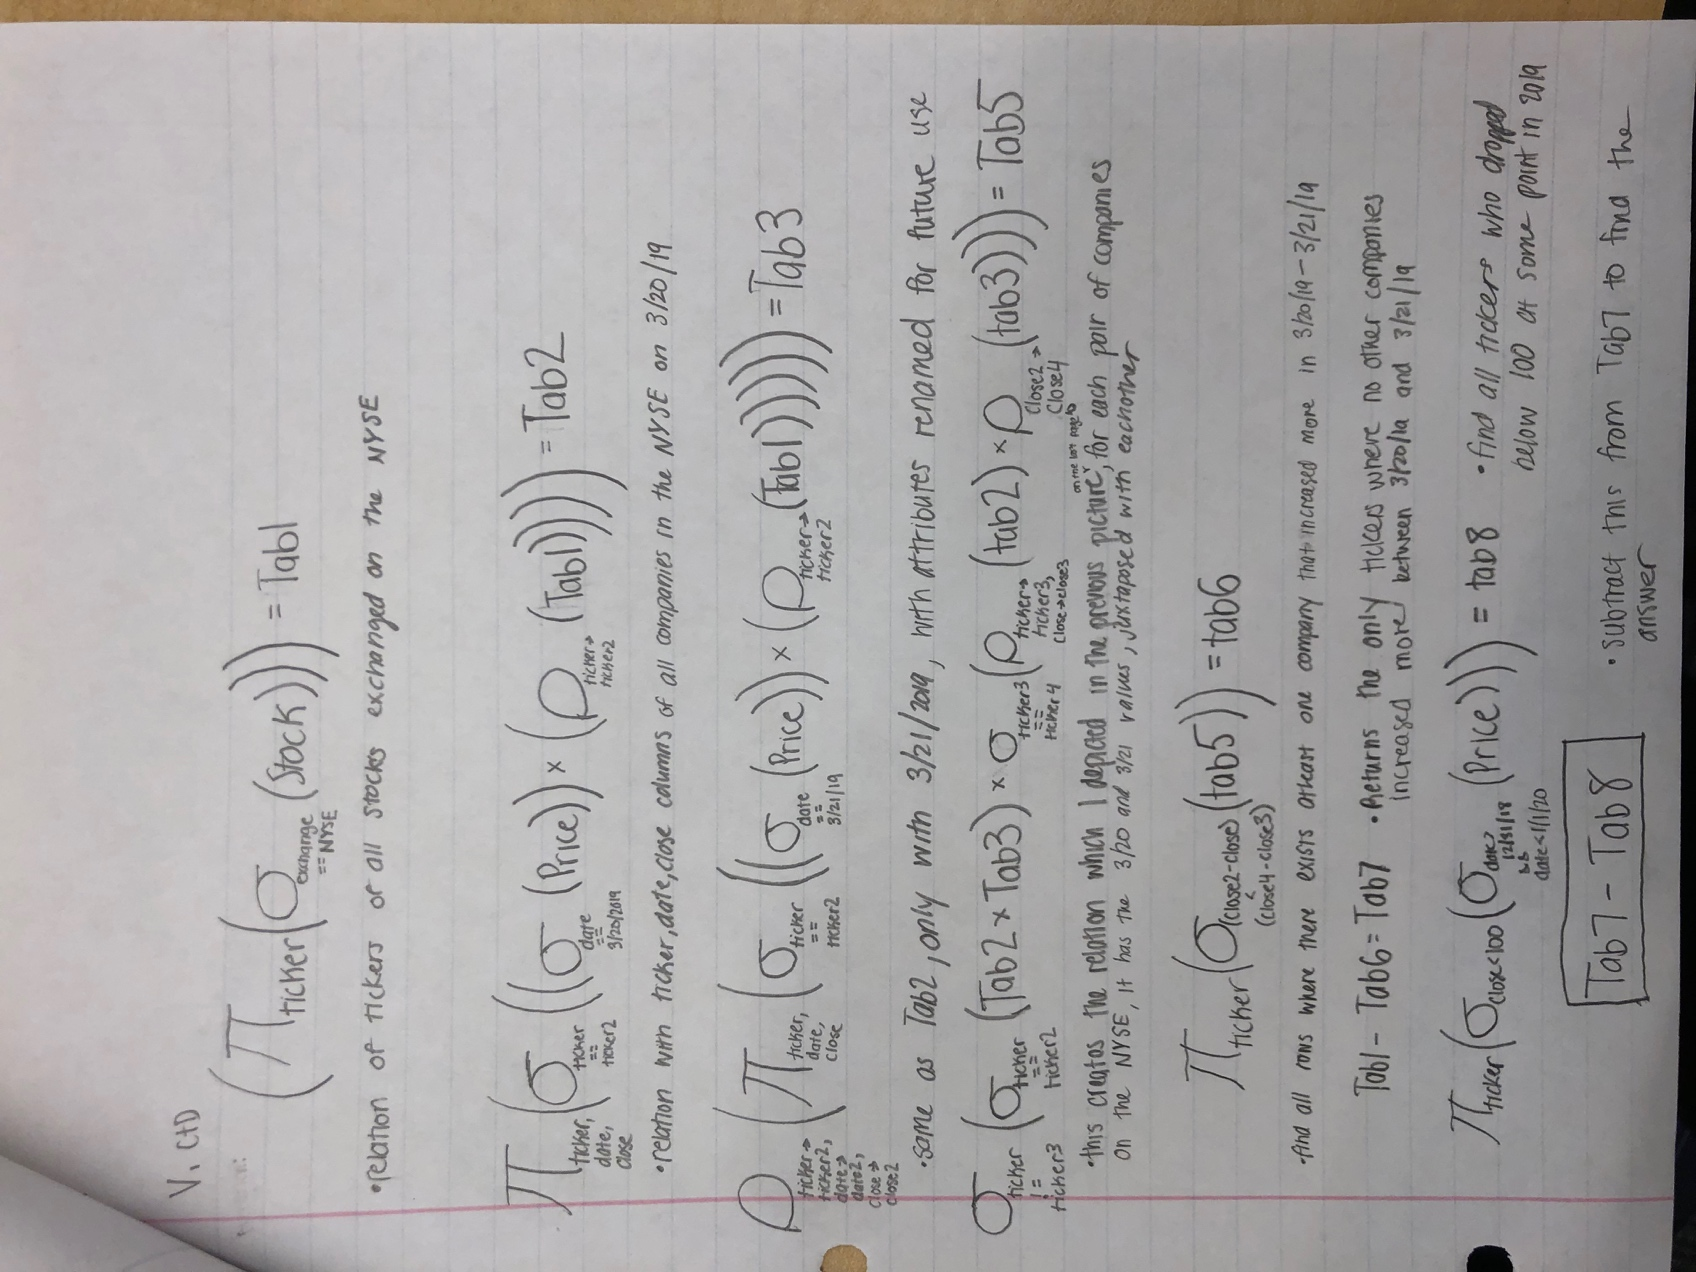 V. ctd
(π ticker (σ exchange == NYSE (Stock))) = Tab1
• relation of tickers of all stocks exchanged on the NYSE
π ticker, date, close (σ ticker == ticker2 ((σ date == 3/20/2019 (Price)) × (ρ ticker→ticker2 (Tab1)))) = Tab2
• relation with ticker, date, close columns of all companies in the NYSE on 3/20/19
ρ ticker→ticker2, date→date2, close→close2 (π ticker, date, close (σ ticker == ticker2 ((σ date == 3/21/19 (Price)) × (ρ ticker→ticker2 (Tab1)))))) = Tab3
• same as Tab2, only with 3/21/2019, with attributes renamed for future use
σ ticker != ticker3 (σ ticker == ticker2 (Tab2 × Tab3) × σ ticker3 == ticker4 (ρ ticker→ticker3, close→close3 (tab2) × ρ close2→close4 (tab3)))) = Tab5
• this creates the relation which I depicted in the previous picture, on the last page, for each pair of companies
on the NYSE, it has the 3/20 and 3/21 values, juxtaposed with eachother
π ticker (σ (close2-close) < (close4-close3) (tab5)) = tab6
• find all rows where there exists atleast one company that increased more in 3/20/19 - 3/21/19
Tab1 - Tab6 = Tab7 • Returns the only tickers where no other companies
increased more between 3/20/19 and 3/21/19
π ticker (σ close<100 (σ date> 12/31/18 && date<1/1/20 (Price))) = tab8 • find all tickers who dropped
below 100 at some point in 2019
Tab7 - Tab8 • subtract this from Tab7 to find the
answer